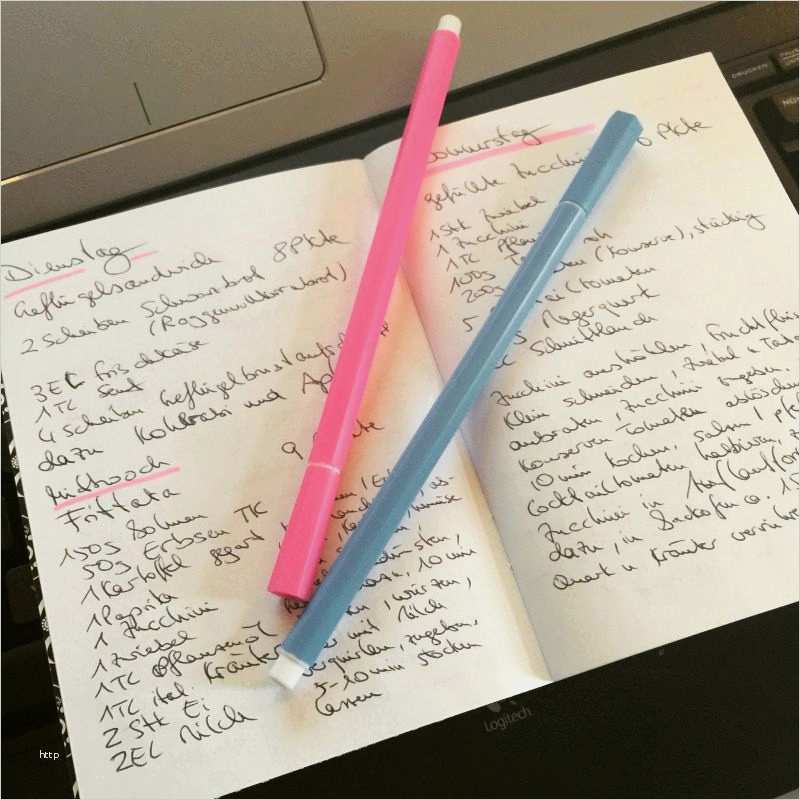 Dienstag
Geflügelsandwich 8 Pkte
2 Scheiben Schwarzbrot
(Roggenvollkornbrot)
3EL Frischkäse
1TL Senf
4 Scheiben Geflügelbrustaufschnitt
dazu Kohlrabi und
Mittwoch 9
Frittata
150g Bohnen
50g Erbsen TK
1 Kartoffel gegart
1 Paprika
1 Zucchini
1 Zwiebel
1TL Pflanzenöl
1TL ital. Kräuter
2 Stk Ei
2EL Milch
10 min
würzen,
mit Milch
verquirlen, zugeben,
5-10 min stocken
lassen
Donnerstag
gefüllte Zucchini 6 Pkte
1 Stk Zwiebel
1 Zucchini
1TL
100g
200g (Konserve), stückig
5
Magerquark
Schnittlauch
Zucchini aushöhlen, Fruchtfleisch
klein schneiden, Zwiebel +
anbraten, Zucchini zugeben.
Konserven Tomaten
10 min kochen, Salz,
Cocktailtomaten halbieren,
Zucchini in Auflaufform
dazu, in Backofen ca. 15
Quark u Kräuter
DRUCKEN
Logitech
http